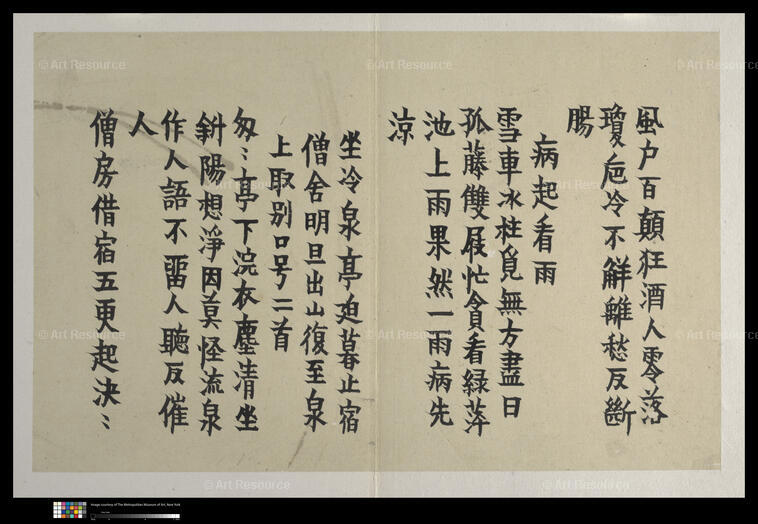 風户百顛狂酒人零落
瓊巵冷不解離愁反斷
腸
病起看雨
雪車冰柱覓無方盡日
孤藤雙屐忙貪看綠萍
池上雨果然一雨病先
涼
坐冷泉亭迫暮止宿
僧舍明旦出山復至泉
上取别口号二首
匆〻亭下浣衣塵清坐
斜陽想淨因莫怪流泉
作人語不留人聽反催
人
僧房借宿五更起決〻
Image courtesy of The Metropolitan Museum of Art, New York
© Art Resource
© Art Resource
© Art Resource
© Art Resource
© Art Resource
© Art Resource
© Art Resource
© Art Resource